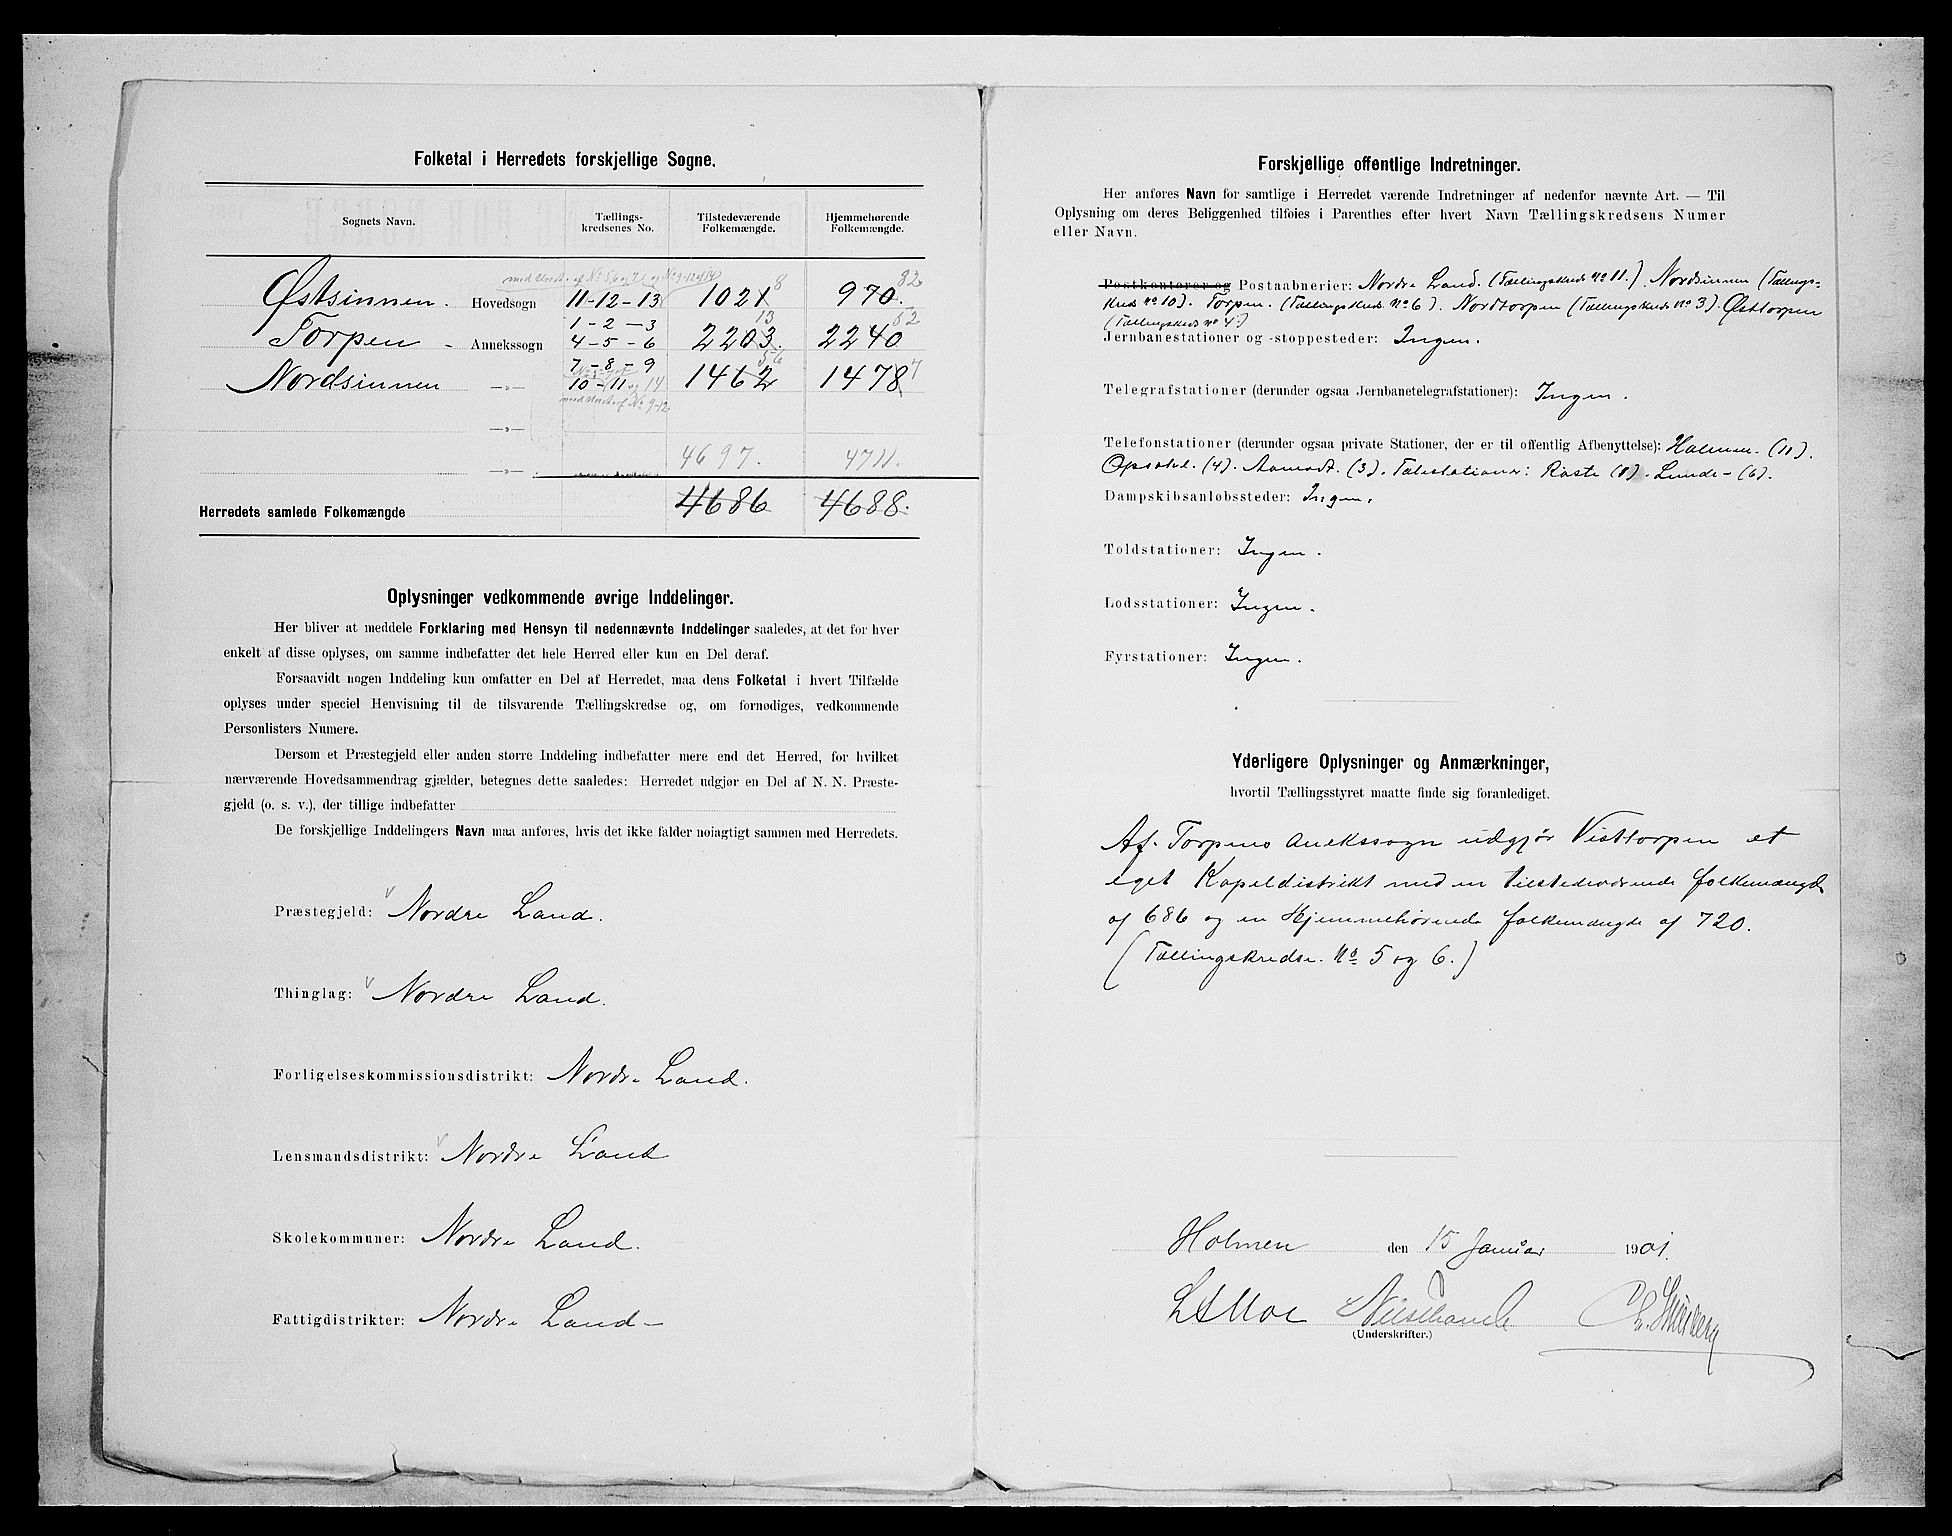 Folketal i Herredets forskjellige Sogne.
Sognets Navn.
Tællings-
kredsenes No.
Tilstedeværende
Folkemængde.
Hjemmehørende
Folkemængde.
Østsinnen. Hovedsogn 11-12-13 1021 8 970. 82
1-2-3
Torpen - Annekssogn 4-5-6 2203. 13 2240 52
7-8-9
Nordsinnen —„— 10-11 og 14 1462 56 1478 7
—„—
4697. 4711.
—„—
Herredets samlede Folkemængde 4686 4688.
Oplysninger vedkommende øvrige Inddelinger.
Her bliver at meddele Forklaring med Hensyn til nedennævnte Inddelinger saaledes, at det for hver
enkelt af disse oplyses, om samme indbefatter det hele Herred eller kun en Del deraf.
Forsaavidt nogen Inddeling kun omfatter en Del af Herredet, maa dens Folketal i hvert Tilfælde
oplyses under speciel Henvisning til de tilsvarende Tællingskredse og, om fornødiges, vedkommende
Personlisters Numere.
Dersom et Præstegjeld eller anden større Inddeling indbefatter mere end det Herred, for hvilket
nærværende Hovedsammendrag gjælder, betegnes dette saaledes: Herredet udgjør en Del af N. N. Præste-
gjeld (o. s. v.), der tillige indbefatter
De forskjellige Inddelingers Navn maa anføres, hvis det ikke falder nøiagtigt sammen med Herredets.
Præstegjeld: Nordre Land.
Thinglag: Nordre Land.
Forligelseskommissionsdistrikt: Nordre Land.
Lensmandsdistrikt: Nordre Land
Skolekommuner: Nordre Land.
Fattigdistrikter: Nordre Land-
Forskjellige offentlige Indretninger.
Her anføres Navn for samtlige i Herredet værende Indretninger af nedenfor nævnte Art. — Til
Oplysning om deres Beliggenhed tilføies i Parenthes efter hvert Navn Tællingskredsens Numer
eller Navn.
Postkontorer og Postaabnerier: Nordre Land. (Tællingskreds no 11.) Nordsinnen (Tællings-
kreds no 10). Torpen. (Tællingskreds no 6). Nordtorpen (Tællingskreds no 3). Østtorpen
(Tællingskreds no 4.)
Jernbanestationer og -stoppesteder: Ingen.
Telegrafstationer (derunder ogsaa Jernbanetelegrafstationer): Ingen.
Telefonstationer (derunder ogsaa private Stationer, der er til offentlig Afbenyttelse): Holmen (11).
Opsahl. (4). Aamodt. (3). Talestationer: Roste (8). Lunde- (6).
Dampskibsanløbssteder: Ingen.
Toldstationer: Ingen.
Lodsstationer: Ingen.
Fyrstationer: Ingen.
Yderligere Oplysninger og Anmærkninger,
hvortil Tællingsstyret maatte finde sig foranlediget.
Af Torpens Anekssogn udgjør Vesttorpen et
eget Kapeldistrikt med en tilstedeværende folkemængde
af 686 og en hjemmehørende folkemængde af 720.
(Tællingskredse. No 5 og 6.)
Holmen den 15 Januar 1901.
(Underskrifter.)